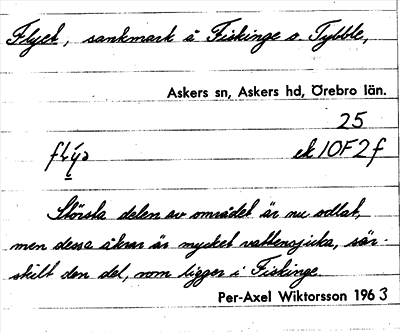 Flyet, sankmark å Fiskinge o. Tybble,
Askers sn, Askers hd, Örebro län.
25
ek 10F2f
Största delen av området är nu odlat,
men dessa åkrar är mycket vattensjuka, sär-
skilt den del, som ligger i Fiskinge.
Per-Axel Wiktorsson 1963